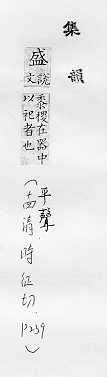 集韻
盛說文黍稷在器中以祀者也
(平聲
十四清,時征切,P239)